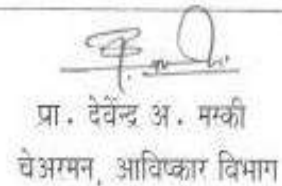 प्रा. देवेंद्र अ. मस्की
चेअरमन, आविष्कार विभाग